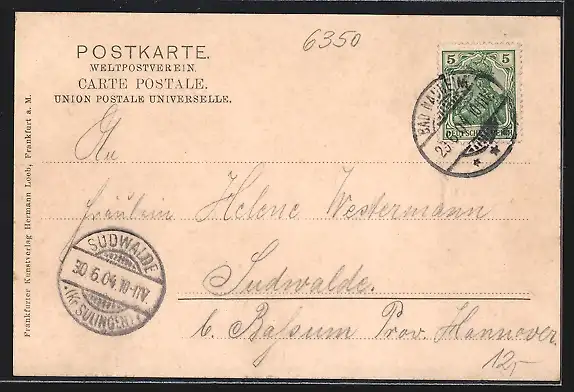 POSTKARTE.
WELTPOSTVEREIN.
CARTE POSTALE.
UNION POSTALE UNIVERSELLE.
6350
5 5
DEUTSCHES REICH
BAD NAUHEIM
An
Fräulein Helene Westermann
Sudwalde.
b. Bassum Prov. Hannover.
12,-
SUDWALDE
30.6.04.10-11V.
(Kr. SULINGEN)
Frankfurter Kunstverlag Hermann Loeb, Frankfurt a. M.